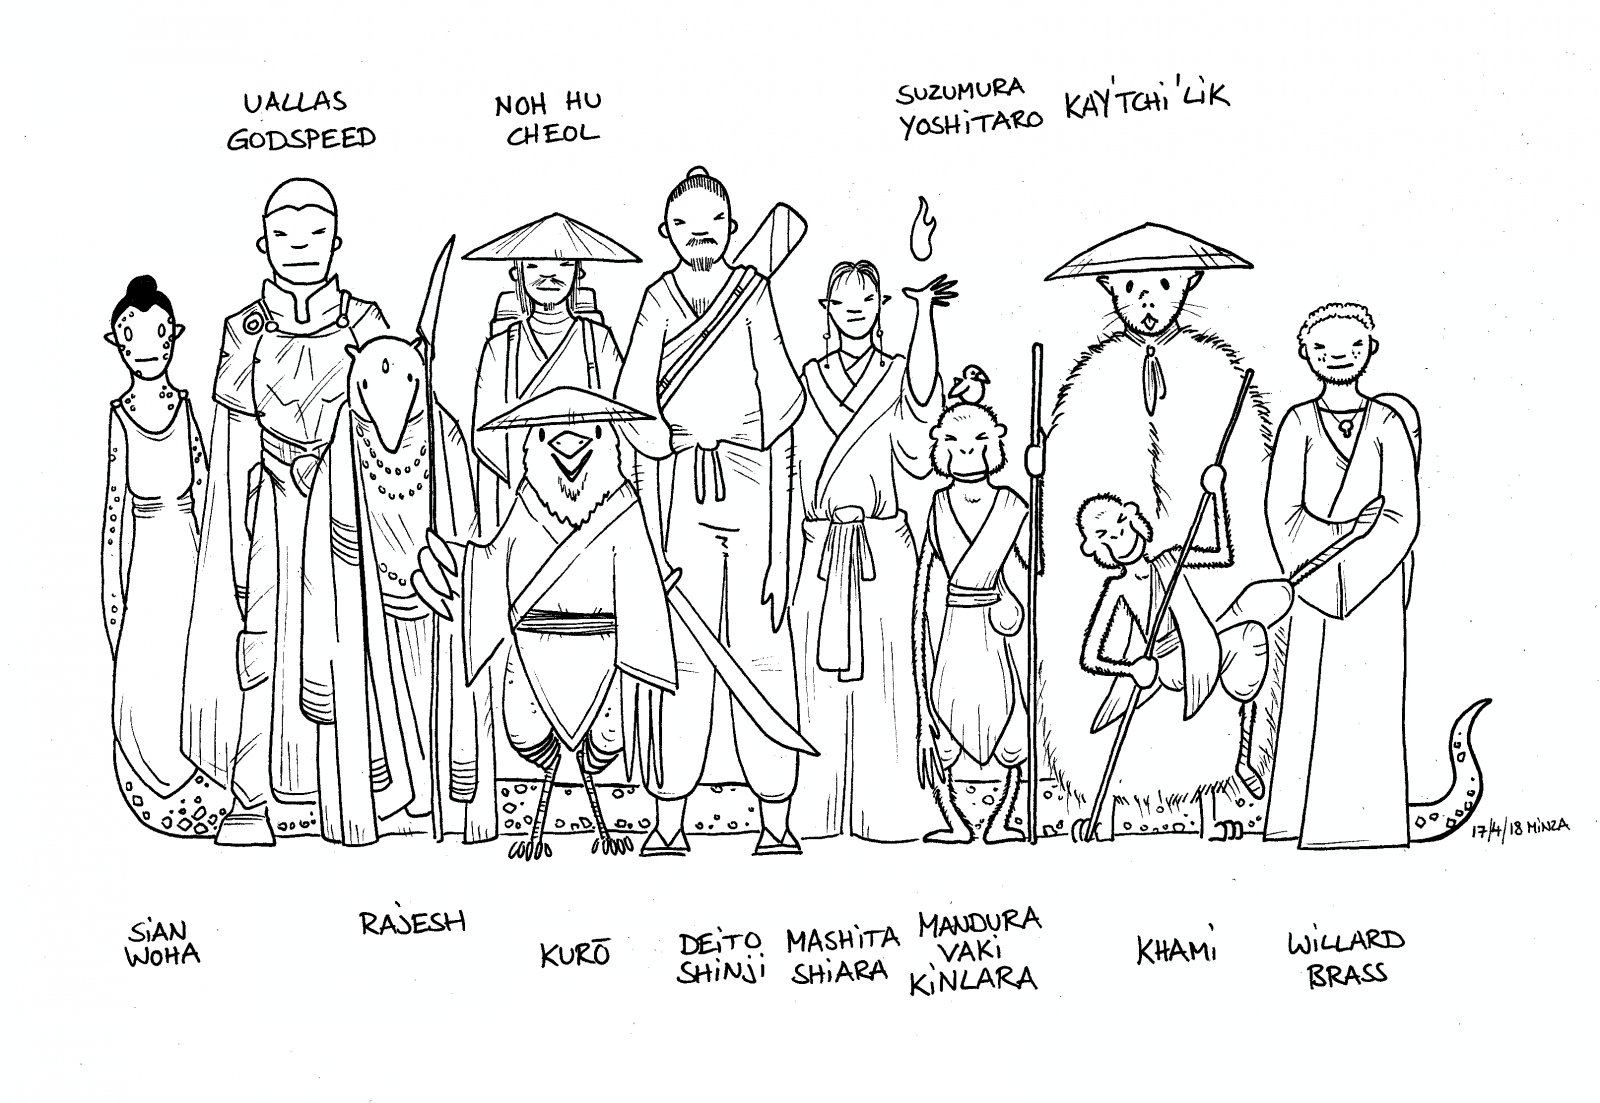 UALLAS
GODSPEED
NOH HU
CHEOL
SUZUMURA
YOSHITARO
KAY'TCHI'LIK
17/4/18 MINZA
SIAN
WOHA
RAJESH
KURŌ
DEITO
SHINJI
MASHITA
SHIARA
MANDURA
VAKI
KINLARA
KHAMI
WILLARD
BRASS